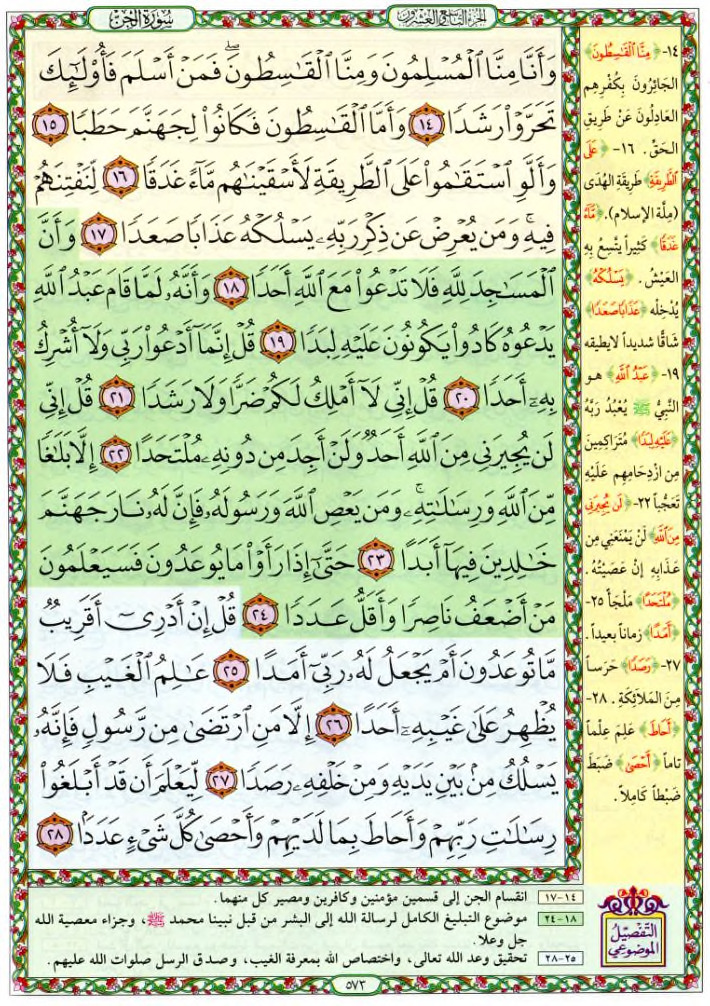 سُورَةُ الجِنّ
الجزء التاسع والعشرون
وَأَنَّا مِنَّا ٱلْمُسْلِمُونَ وَمِنَّا ٱلْقَٰسِطُونَۖ فَمَنْ أَسْلَمَ فَأُو۟لَٰٓئِكَ
تَحَرَّوْا۟ رَشَدًا ١٤ وَأَمَّا ٱلْقَٰسِطُونَ فَكَانُوا۟ لِجَهَنَّمَ حَطَبًا ١٥
وَأَلَّوِ ٱسْتَقَٰمُوا۟ عَلَى ٱلطَّرِيقَةِ لَأَسْقَيْنَٰهُم مَّآءً غَدَقًا ١٦ لِّنَفْتِنَهُمْ
فِيهِۚ وَمَن يُعْرِضْ عَن ذِكْرِ رَبِّهِۦ يَسْلُكْهُ عَذَابًا صَعَدًا ١٧ وَأَنَّ
ٱلْمَسَٰجِدَ لِلَّهِ فَلَا تَدْعُوا۟ مَعَ ٱللَّهِ أَحَدًا ١٨ وَأَنَّهُۥ لَمَّا قَامَ عَبْدُ ٱللَّهِ
يَدْعُوهُ كَادُوا۟ يَكُونُونَ عَلَيْهِ لِبَدًا ١٩ قُلْ إِنَّمَآ أَدْعُوا۟ رَبِّى وَلَآ أُشْرِكُ
بِهِۦٓ أَحَدًا ٢٠ قُلْ إِنِّى لَآ أَمْلِكُ لَكُمْ ضَرًّا وَلَا رَشَدًا ٢١ قُلْ إِنِّى
لَن يُجِيرَنِى مِنَ ٱللَّهِ أَحَدٌ وَلَنْ أَجِدَ مِن دُونِهِۦ مُلْتَحَدًا ٢٢ إِلَّا بَلَٰغًا
مِّنَ ٱللَّهِ وَرِسَٰلَٰتِهِۦۚ وَمَن يَعْصِ ٱللَّهَ وَرَسُولَهُۥ فَإِنَّ لَهُۥ نَارَ جَهَنَّمَ
خَٰلِدِينَ فِيهَآ أَبَدًا ٢٣ حَتَّىٰٓ إِذَا رَأَوْا۟ مَا يُوعَدُونَ فَسَيَعْلَمُونَ
مَنْ أَضْعَفُ نَاصِرًا وَأَقَلُّ عَدَدًا ٢٤ قُلْ إِنْ أَدْرِىٓ أَقَرِيبٌ
مَّا تُوعَدُونَ أَمْ يَجْعَلُ لَهُۥ رَبِّىٓ أَمَدًا ٢٥ عَٰلِمُ ٱلْغَيْبِ فَلَا
يُظْهِرُ عَلَىٰ غَيْبِهِۦٓ أَحَدًا ٢٦ إِلَّا مَنِ ٱرْتَضَىٰ مِن رَّسُولٍ فَإِنَّهُۥ
يَسْلُكُ مِنۢ بَيْنِ يَدَيْهِ وَمِنْ خَلْفِهِۦ رَصَدًا ٢٧ لِّيَعْلَمَ أَن قَدْ أَبْلَغُوا۟
رِسَٰلَٰتِ رَبِّهِمْ وَأَحَاطَ بِمَا لَدَيْهِمْ وَأَحْصَىٰ كُلَّ شَىْءٍ عَدَدًۢا ٢٨
١٤-﴿مِنَّا ٱلْقَٰسِطُونَ﴾
الجَائِرُونَ بِكُفْرِهِم
العَادِلُونَ عَنْ طَرِيقِ
الحَقِّ. ١٦-﴿عَلَى
ٱلطَّرِيقَةِ﴾ طَرِيقَةِ الهُدَى
(مِلَّةِ الإسلام). ﴿مَّآءً
غَدَقًا﴾ كَثِيراً يَتَّسِعُ بِهِ
العَيْشُ. ﴿يَسْلُكْهُ﴾
يُدْخِلْه ﴿عَذَابًا صَعَدًا﴾
شَاقًّا شديداً لايطيقه
١٩-﴿عَبْدُ ٱللَّهِ﴾ هو
النَّبِيُّ ﷺ يَعْبُدُ رَبَّهُ
﴿عَلَيْهِ لِبَدًا﴾ مُتَرَاكِمِينَ
مِن ازْدِحَامِهِم عَلَيْهِ
تَعَجُّباً ٢٢-﴿لَن يُجِيرَنِى
مِنَ ٱللَّهِ﴾ لَنْ يَمْنَعَنِي مِن
عَذَابِهِ إنْ عَصَيْتُهُ.
﴿مُلْتَحَدًا﴾ مَلْجَأً ٢٥-
﴿أَمَدًا﴾ زماناً بعيداً.
٢٧-﴿رَصَدًا﴾ حَرَساً
مِنَ المَلَائِكَةِ. ٢٨-
﴿أَحَاطَ﴾ عَلِمَ عِلْماً
تاماً ﴿أَحْصَىٰ﴾ ضَبَطَ
ضَبْطاً كَامِلاً.
التَّفصِيْلُ
الموضُوعِي
١٤-١٧ انقسام الجن إلى قسمين مؤمنين وكافرين ومصير كل منهما.
١٨-٢٤ موضوع التبليغ الكامل لرسالة الله إلى البشر من قبل نبينا محمد ﷺ، وجزاء معصية الله
جل وعلا.
٢٥-٢٨ تحقيق وعد الله تعالى، واختصاص الله بمعرفة الغيب، وصدق الرسل صلوات الله عليهم.
٥٧٣